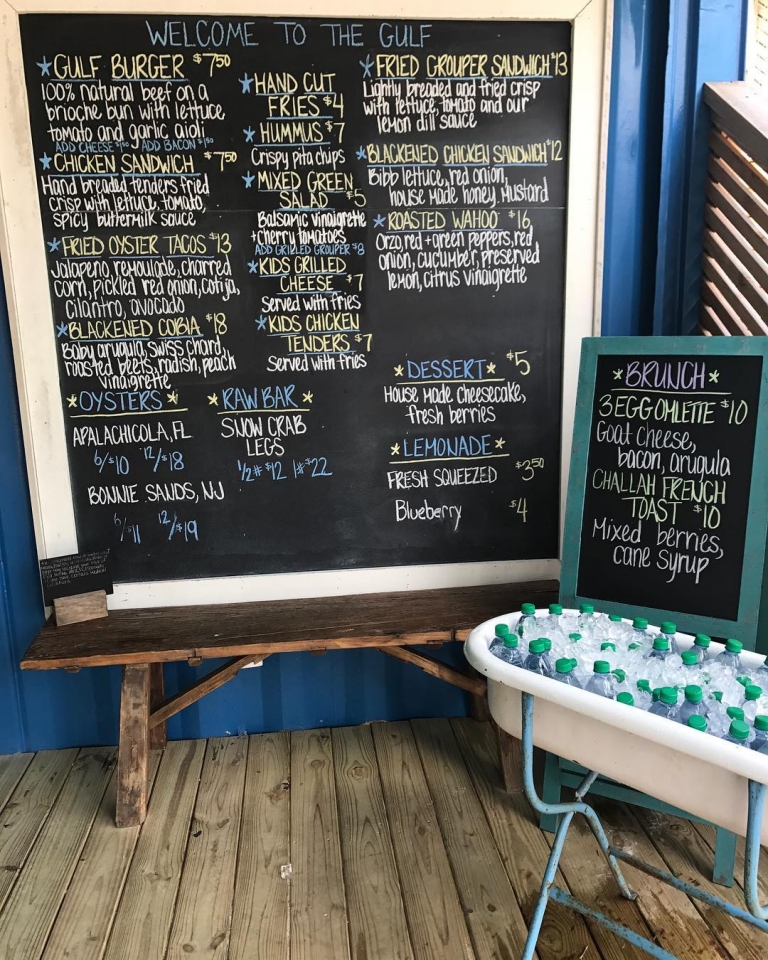 WELCOME TO THE GULF
*GULF BURGER $7.50
100% natural beef on a
brioche bun with lettuce,
tomato and garlic aioli
ADD CHEESE $1.00 ADD BACON $1.50
*CHICKEN SANDWICH $7.50
Hand breaded tenders fried
crisp with lettuce, tomato,
spicy buttermilk sauce
*FRIED OYSTER TACOS $13
Jalapeno remoulade, charred
corn, pickled red onion, cotija,
cilantro, avocado
*BLACKENED COBIA $18
Baby arugula, swiss chard,
roasted beets, radish, peach
vinaigrette
*OYSTERS*
APALACHICOLA, FL
6/$10 12/$18
BONNIE SANDS, NJ
6/$11 12/$19
*HAND CUT
FRIES $4
*HUMMUS $7
Crispy pita chips
*MIXED GREEN
SALAD $5
Balsamic vinaigrette
+ cherry tomatoes
ADD GRILLED GROUPER $8
*KIDS GRILLED
CHEESE $7
served with fries
*KIDS CHICKEN
TENDERS $7
served with fries
*RAW BAR*
SNOW CRAB
LEGS
1/2# $12 1# $22
*FRIED GROUPER SANDWICH $13
Lightly breaded and fried crisp
with lettuce, tomato and our
lemon dill sauce
*BLACKENED CHICKEN SANDWICH $12
Bibb lettuce, red onion,
house made honey mustard
*ROASTED WAHOO $16
Orzo, red + green peppers, red
onion, cucumber, preserved
lemon, citrus vinaigrette
*DESSERT* $5
House made cheesecake,
fresh berries
*LEMONADE*
FRESH SQUEEZED $3.50
Blueberry $4
*BRUNCH*
3 EGG OMLETTE $10
Goat cheese,
bacon, arugula
CHALLAH FRENCH
TOAST $10
Mixed berries,
cane syrup